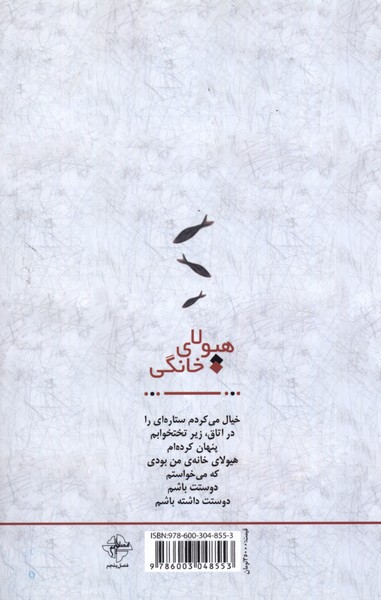 هیولای
خانگی
خیال می‌کردم ستاره‌ای را
در اتاق، زیر تختخوابم
پنهان کرده‌ام
هیولای خانه‌ی من بودی
که می‌خواستم
دوستت باشم
دوستت داشته باشم
ISBN:978-600-304-855-3
9786003048553
فصل پنجم